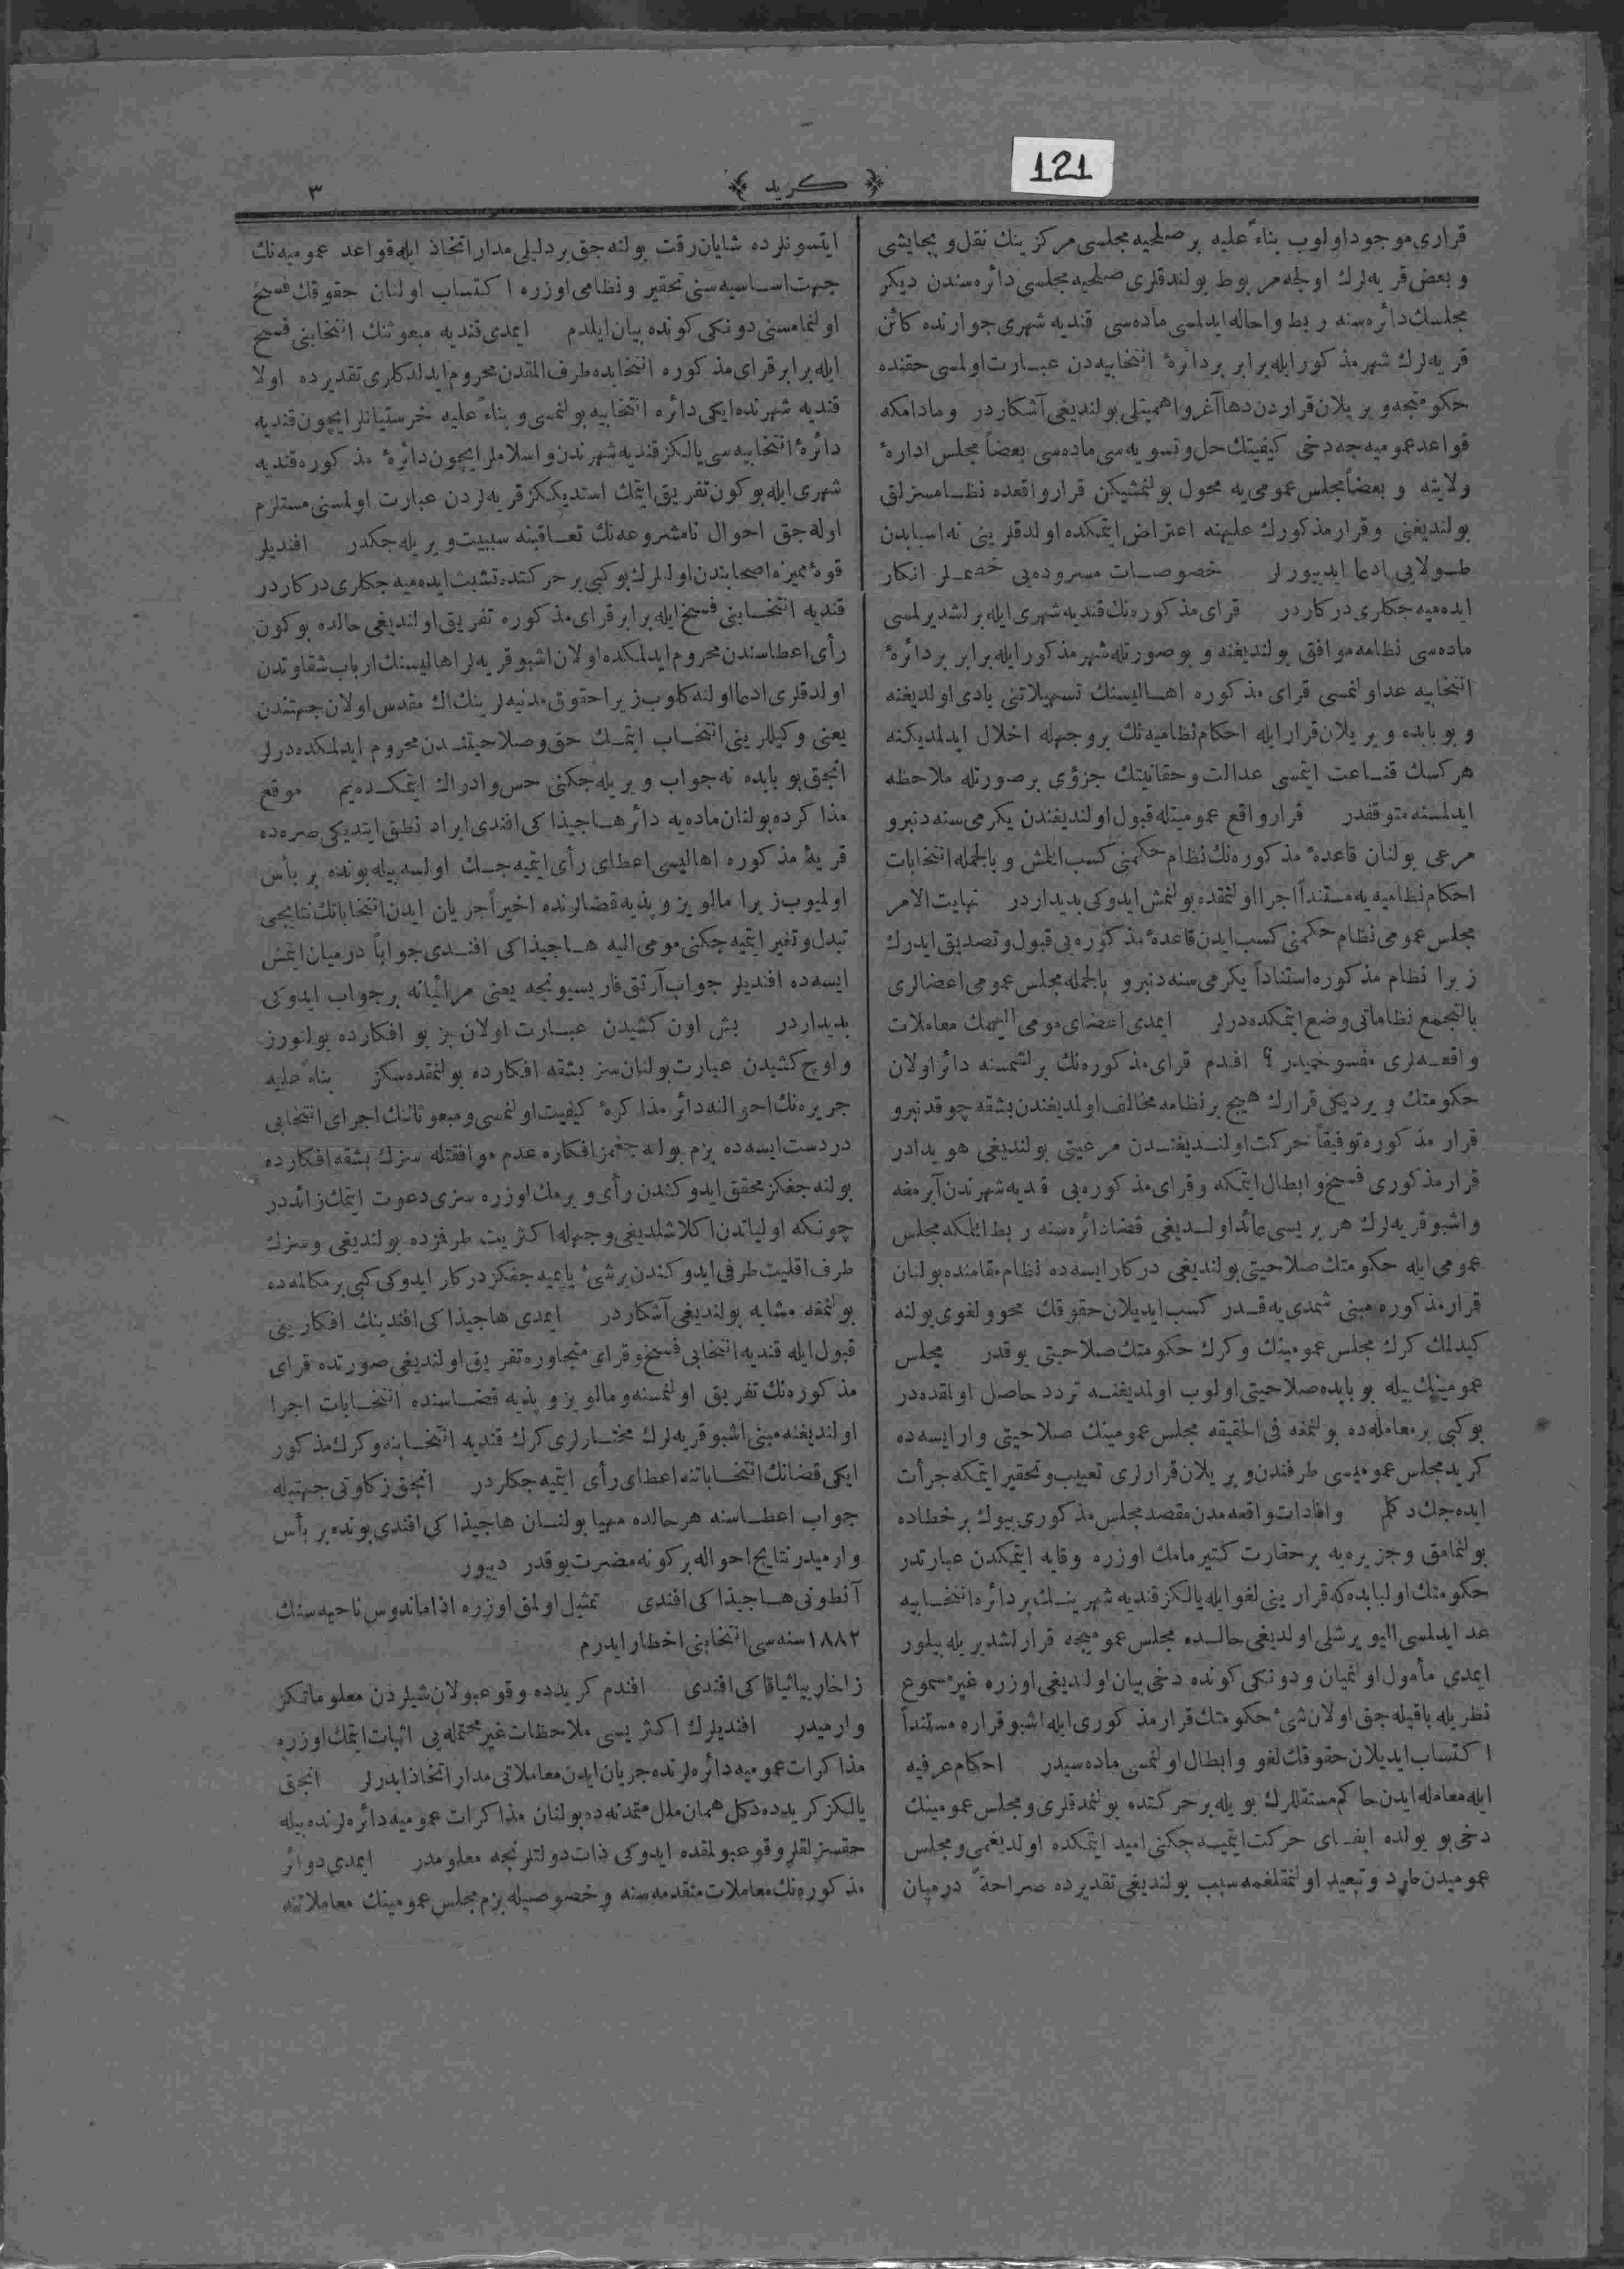 121
﴿ كريد ﴾
٣
قراری موجود اولوب بناءً عليه بر صلحيه مجلسی مركز ينك نقل و بجايشی
و بعض قريه لرك اولجه مربوط بولندقلری صلحيه مجلسی دائره سندن ديكر
مجلسك دائره سنه ربط و احاله ايدلمسی ماده سی قنديه شهری جوارنده كائن
قريه لرك شهر مذكور ايله برابر بر دائرهٔ انتخابيه دن عبارت اولمسی حقنده
حكومتجه ويريلان قراردن دها آغر و اهميتلی بولنديغی آشكاردر و مادامكه
قواعد عموميه جه دخی كيفيتك حل و تسويه سی ماده سی بعضاً مجلس ادارهٔ
ولايته و بعضاً مجلس عمومی يه محول بولنمشيكن قرار واقعده نظامسزلق
بولنديغنی و قرار مذكورك عليهنه اعتراض ايتمكده اولدقلرينی نه اسبابدن
طولايی ادعا ايدييورلر خصوصات مسروده يی خصملر انكار
ايده ميه جكلری دركاردر قرای مذكوره نك قنديه شهری ايله برلشديرلمسی
ماده سی نظامه موافق بولنديغنه و بو صورتله شهر مذكور ايله برابر بر دائرهٔ
انتخابيه عد اولنمسی قرای مذكوره اهاليسنك تسهيلاتنی بادی اولديغنه
و بو بابده ويريلان قرار ايله احكام نظاميه نك بر وجهله اخلال ايدلمديكنه
هركسك قناعت ايتمسی عدالت و حقانيتك جزؤی بر صورتله ملاحظه
ايدلمسنه متوقفدر قرار واقع عموميتله قبول اولنديغندن يكرمی سنه دنبرو
مرعی بولنان قاعدهٔ مذكوره نك نظام حكمنی كسب ايلمش و بالجمله انتخابات
احكام نظاميه يه مستنداً اجرا اولنمقده بولنمش ايدوكی بديداردر نهايت الامر
مجلس عمومی نظام حكمنی كسب ايدن قاعدهٔ مذكوره يی قبول و تصديق ايدرك
زيرا نظام مذكوره استناداً يكرمی سنه دنبرو بالجمله مجلس عمومی اعضالری
بالتجمع نظاماتی وضع ايتمكده درلر ايمدی اعضای مومی اليهمك معاملات
واقعه لری مفسوخميدر ؟ افندم قرای مذكوره نك برلشمسنه دائر اولان
حكومتك ويرديكی قرارك هيچ بر نظامه مخالف اولمديغندن بشقه چوقدنبرو
قرار مذكوره توفيقاً حركت اولنديغندن مرعيتی بولنديغی هويدادر
قرار مذكوری فسخ و ابطال ايتمكه و قرای مذكوره يی قنديه شهرندن آيرمغه
و اشبو قريه لرك هر بريسی عائد اولديغی قضا دائره سنه ربط ايلمكه مجلس
عمومی ايله حكومتك صلاحيتی بولنديغی دركار ايسه ده نظام مقامنده بولنان
قرار مذكوره مبنی شمدی يه قدر كسب ايديلان حقوقك محو و لغوی يولنه
كيدلمك كرك مجلس عمومينك و كرك حكومتك صلاحيتی يوقدر مجلس
عمومينك بيله بو بابده صلاحيتی اولوب اولمديغنه تردد حاصل اولمقده در
بو كبی بر معامله ده بولنمغه فی الحقيقه مجلس عمومينك صلاحيتی وار ايسه ده
كريد مجلس عموميسی طرفندن ويريلان قرارلری تعييب و تحقير ايتمكه جرأت
ايده جك دكلم و افادات واقعه مدن مقصد مجلس مذكوری بيوك بر خطاده
بولنمامق و جزيره يه بر حقارت كتيرمامك اوزره وقايه ايتمكدن عبارتدر
حكومتك اولبابده كه قرارينی لغو ايله يالكز قنديه شهرينك بر دائرهٔ انتخابيه
عد ايدلمسی اليوم پرشلی اولديغی حالده مجلس عموميجه قرارلشديريله بيلور
ايمدی مأمول اولنميان و دونكی كونده دخی بيان اولنديغی اوزره غير مسموع
نظريله باقيله جق اولان شیٔ حكومتك قرار مذكوری ايله اشبو قراره مستنداً
اكتساب ايديلان حقوقك لغو و ابطال اولنمسی ماده سيدر احكام عرفيه
ايله معامله ايدن حاكم مستقللرك بويله بر حركتده بولنمدقلری و مجلس عمومينك
دخی بو يولده ايفای حركت ايتميه جكنی اميد ايتمكده اولديغمی و مجلس
عموميدن طرد و تبعيد اولنمقلغمه سبب بولنديغی تقديرده صراحةً درميان
ايتسونلرده شايان رقت بولنه جق بر دليلی مدار اتخاذ ايله قواعد عموميه نك
جهت اساسيه سنی تحقير و نظامی اوزره اكتساب اولنان حقوقك فسخ
اولنمامسنی دونكی كونده بيان ايلدم ايمدی قنديه مبعوثنك انتخابنی فسخ
ايله برابر قرای مذكوره انتخابده طرف القدن محروم ايدلدكلری تقديرده اولا
قنديه شهرنده ايكی دائره انتخابيه بولنمسی و بناءً عليه خرستيانلر ايچون قنديه
دائرهٔ انتخابيه سی يالكز قنديه شهرندن و اسلاملر ايچون دائرهٔ مذكوره قنديه
شهری ايله بوكون تفريق ايتمك استديككز قريه لردن عبارت اولمسنی مستلزم
اوله جق احوال نامشروعه نك تعاقبنه سببيت ويريله جكدر افنديلر
قوهٔ مميزه اصحابندن اولنلرك بو كبی بر حركتده تشبث ايده ميه جكلری دركاردر
قنديه انتخابنی فسخ ايله برابر قرای مذكوره تفريق اولنديغی حالده بوكون
رأی اعطاسندن محروم ايدلمكده اولان اشبو قريه لر اهاليسنك ارباب شقاوتدن
اولدقلری ادعا اولنه كلوب زيرا حقوق مدنيه لرينك اك مقدس اولان جهتندن
يعنی وكيللرينی انتخاب ايتمك حق و صلاحيتندن محروم ايدلمكده درلر
انجق بو بابده نه جواب ويريله جكنی حس و ادراك ايتمكده يم موقع
مذاكرده بولنان ماده يه دائر هاجيذاكی افندی ايراد نطق ايتديكی صره ده
قريهٔ مذكوره اهاليسی اعطای رأی ايتميه جك اولسه بيله بونده بر بأس
اولميوب زيرا مالويز و پذيه قضالرنده اخيراً جريان ايدن انتخاباتك نتايجی
تبدل و تغير ايتميه جكنی مومی اليه هاجيذاكی افندی جواباً درميان ايتمش
ايسه ده افنديلر جواب آرتق فاريسيونجه يعنی مرائيانه بر جواب ايدوكی
بديداردر بش اون كشيدن عبارت اولان بز بو افكارده بولنورز
و اوچ كشيدن عبارت بولنان سز بشقه افكارده بولنمقده سكز بناءً عليه
جريره نك احوالنه دائر مذاكرهٔ كيفيت اولنمسی و مبعوثاتك اجرای انتخابی
دردست ايسه ده بزم بولنه جغمز افكاره عدم موافقتله سزك بشقه افكارده
بولنه جغكز محقق ايدوكندن رأی ويرمك اوزره سزی دعوت ايتمك زائددر
چونكه اولياتدن اكلاشلديغی وجهله اكثريت طرفزده بولنديغی و سزك
طرف اقليت طرفی ايدوكندن بر شیٔ ياپميه جغكز دركار ايدوكی كبی بر مكالمه ده
بولنمغه مشابه بولنديغی آشكاردر ايمدی هاجيذاكی افندينك افكارينی
قبول ايله قنديه انتخابی فسخ و قرای متجاوره تفريق اولنديغی صورتده قرای
مذكوره نك تفريق اولنمسنه و مالويز و پذيه قضاسنده انتخابات اجرا
اولنديغنه مبنی اشبو قريه لرك مختارلری كرك قنديه انتخابنه و كرك مذكور
ايكی قضانك انتخاباتنه اعطای رأی ايتميه جكلردر انجق زكاوتی جهتيله
جواب اعطاسنه هر حالده مهيا بولنان هاجيذاكی افندی بونده بر بأس
وارميدر نتايج احواله بر كونه مضرت يوقدر دييور
آنطونی هاجيذاكی افندی تمثيل اولمق اوزره اذاماندوس ناحيه سنك
١٨٨٢ سنه سی انتخابنی اخطار ايدرم
زاخار بياثياقاكی افندی افندم كريدده وقوعبولان شيلردن معلوماتمكز
وارميدر افنديلرك اكثريسی ملاحظات غير محتمله يی اثبات ايتمك اوزره
مذاكرات عموميه دائره لرنده جريان ايدن معاملاتی مدار اتخاذ ايدرلر انجق
يالكز كريدده دكل همان ملل متمدنه ده بولنان مذاكرات عموميه دائره لرنده بيله
حقسزلقلر وقوعبولمقده ايدوكی ذات دولتلرنجه معلومدر ايمدی دوائر
مذكوره نك معاملات متقدمه سنه و خصوصيله بزم مجلس عمومينك معاملاتنه